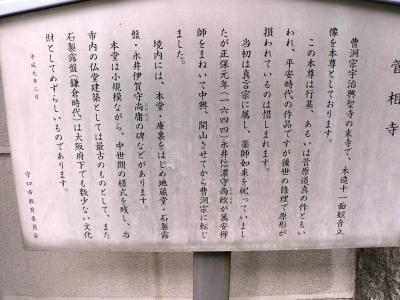 菅相寺
曹洞宗宇治興聖寺の末寺で、木造十一面観音立
像を本尊としております。
この本尊は行基、あるいは菅原道真の作ともい
われ、平安時代の作品ですが後世の修理で原形が
損われているのは惜しまれます。
当初は真言宗に属し、薬師如来を祀っていまし
たが正保元年(一六四四)永井信濃守尚政が萬安禅
師をまねいて中興、開山させてから曹洞宗に転じ
ました。
境内には、本堂・庫裏をはじめ地蔵堂・石製露
盤・永井伊賀守尚庸の碑などがあります。
本堂は小規模ながら、中世期の様式を残し、当
市内の仏堂建築としては最古のものとして、また
石製露盤(鎌倉時代)は大阪府下でも数少ない文化
財としてめずらしいものであります。
平成元年二月
守口市教育委員会